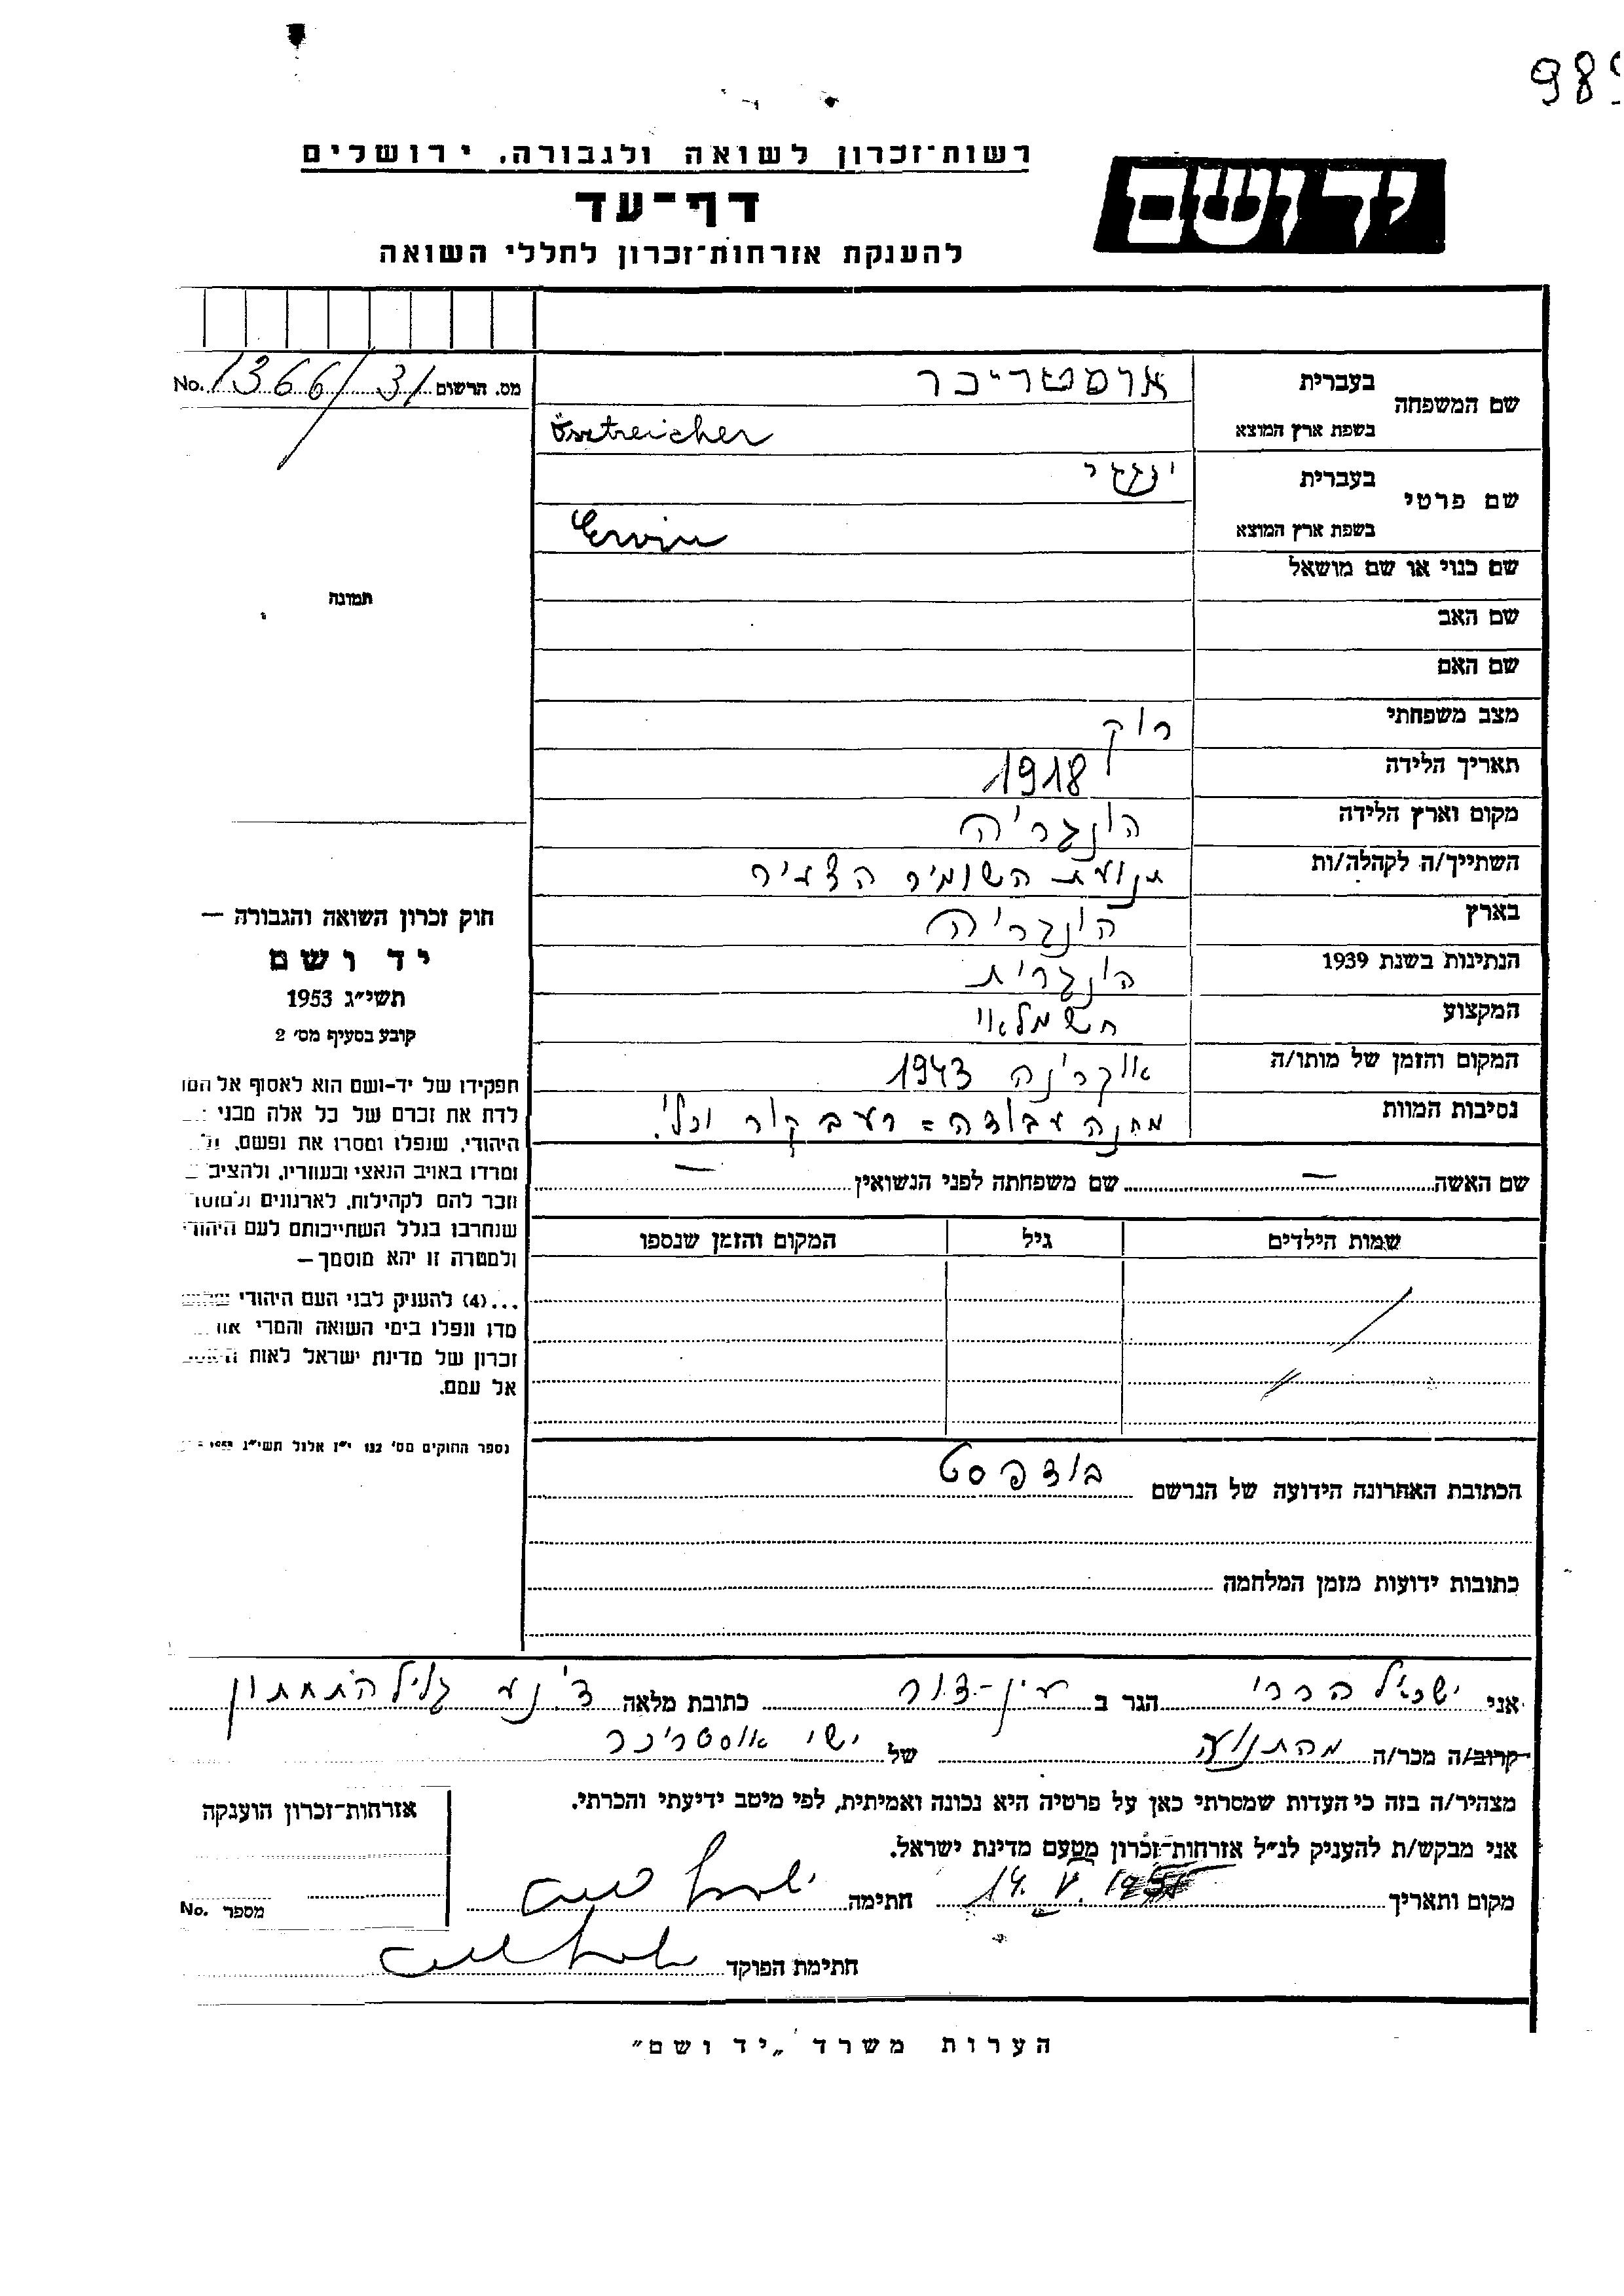 989
ידושם
רשות־זכרון לשואה ולגבורה, ירושלים
דף־עד
להענקת אזרחות־זכרון לחללי השואה
מס. הרשום 1366/31 No.
שם המשפחה
בעברית אוסטריכר
בשפת ארץ המוצא Östreicher
שם פרטי
בעברית
בשפת ארץ המוצא Ervin
שם כנוי או שם מושאל
שם האב
שם האם
מצב משפחתי רוק
תאריך הלידה 1918
מקום וארץ הלידה הונגריה
השתייך/ה לקהלה/ות תנועת השומיר הצעיר
בארץ הונגריה
הנתינות בשנת 1939 הונגרית
המקצוע חשמלאי
המקום והזמן של מותו/ה אוקרינה 1943
נסיבות המוות מחנה עבודה = רעב קור וכלי.
תמונה
חוק זכרון השואה והגבורה —
יד ושם
תשי״ג 1953
קובע בסעיף מס׳ 2
תפקידו של יד-ושם הוא לאסוף אל
לדת את זכרם של כל אלה מבני
היהודי, שנפלו ומסרו את נפשם,
ומרדו באויב הנאצי ובעוזריו, ולהציב
וזכר להם לקהילות, לארגונים
שנחרבו בגלל השתייכותם לעם היהודי
ולמטרה זו יהא מוסמך—
...(4) להעניק לבני העם היהודי
מדו ונפלו בימי השואה והמרי
זכרון של מדינת ישראל לאות
אל עמם.
נספר החוקים מס׳ 132 י״ז אלול תשי״ג
שם האשה — שם משפחתה לפני הנשואין —
שמות הילדים גיל המקום והזמן שנספו
הכתובת האחרונה הידועה של הנרשם בודפסט
כתובות ידועות מזמן המלחמה
אני ישראל הררי הגר ב עין-דור כתובת מלאה ד.נע גליל התחתון
קרוב/ה מכר/ה מהתנועה של ישי אוסטריכר
מצהיר/ה בזה כי העדות שמסרתי כאן על פרטיה היא נכונה ואמיתית, לפי מיטב ידיעתי והכרתי.
אני מבקש/ת להעניק לנ״ל אזרחות־זכרון מטעם מדינת ישראל.
מקום ותאריך 14. V. חתימה
חתימת הפוקד
אזרחות-זכרון הוענקה
מספר No.
הערות משרד „יד ושם״